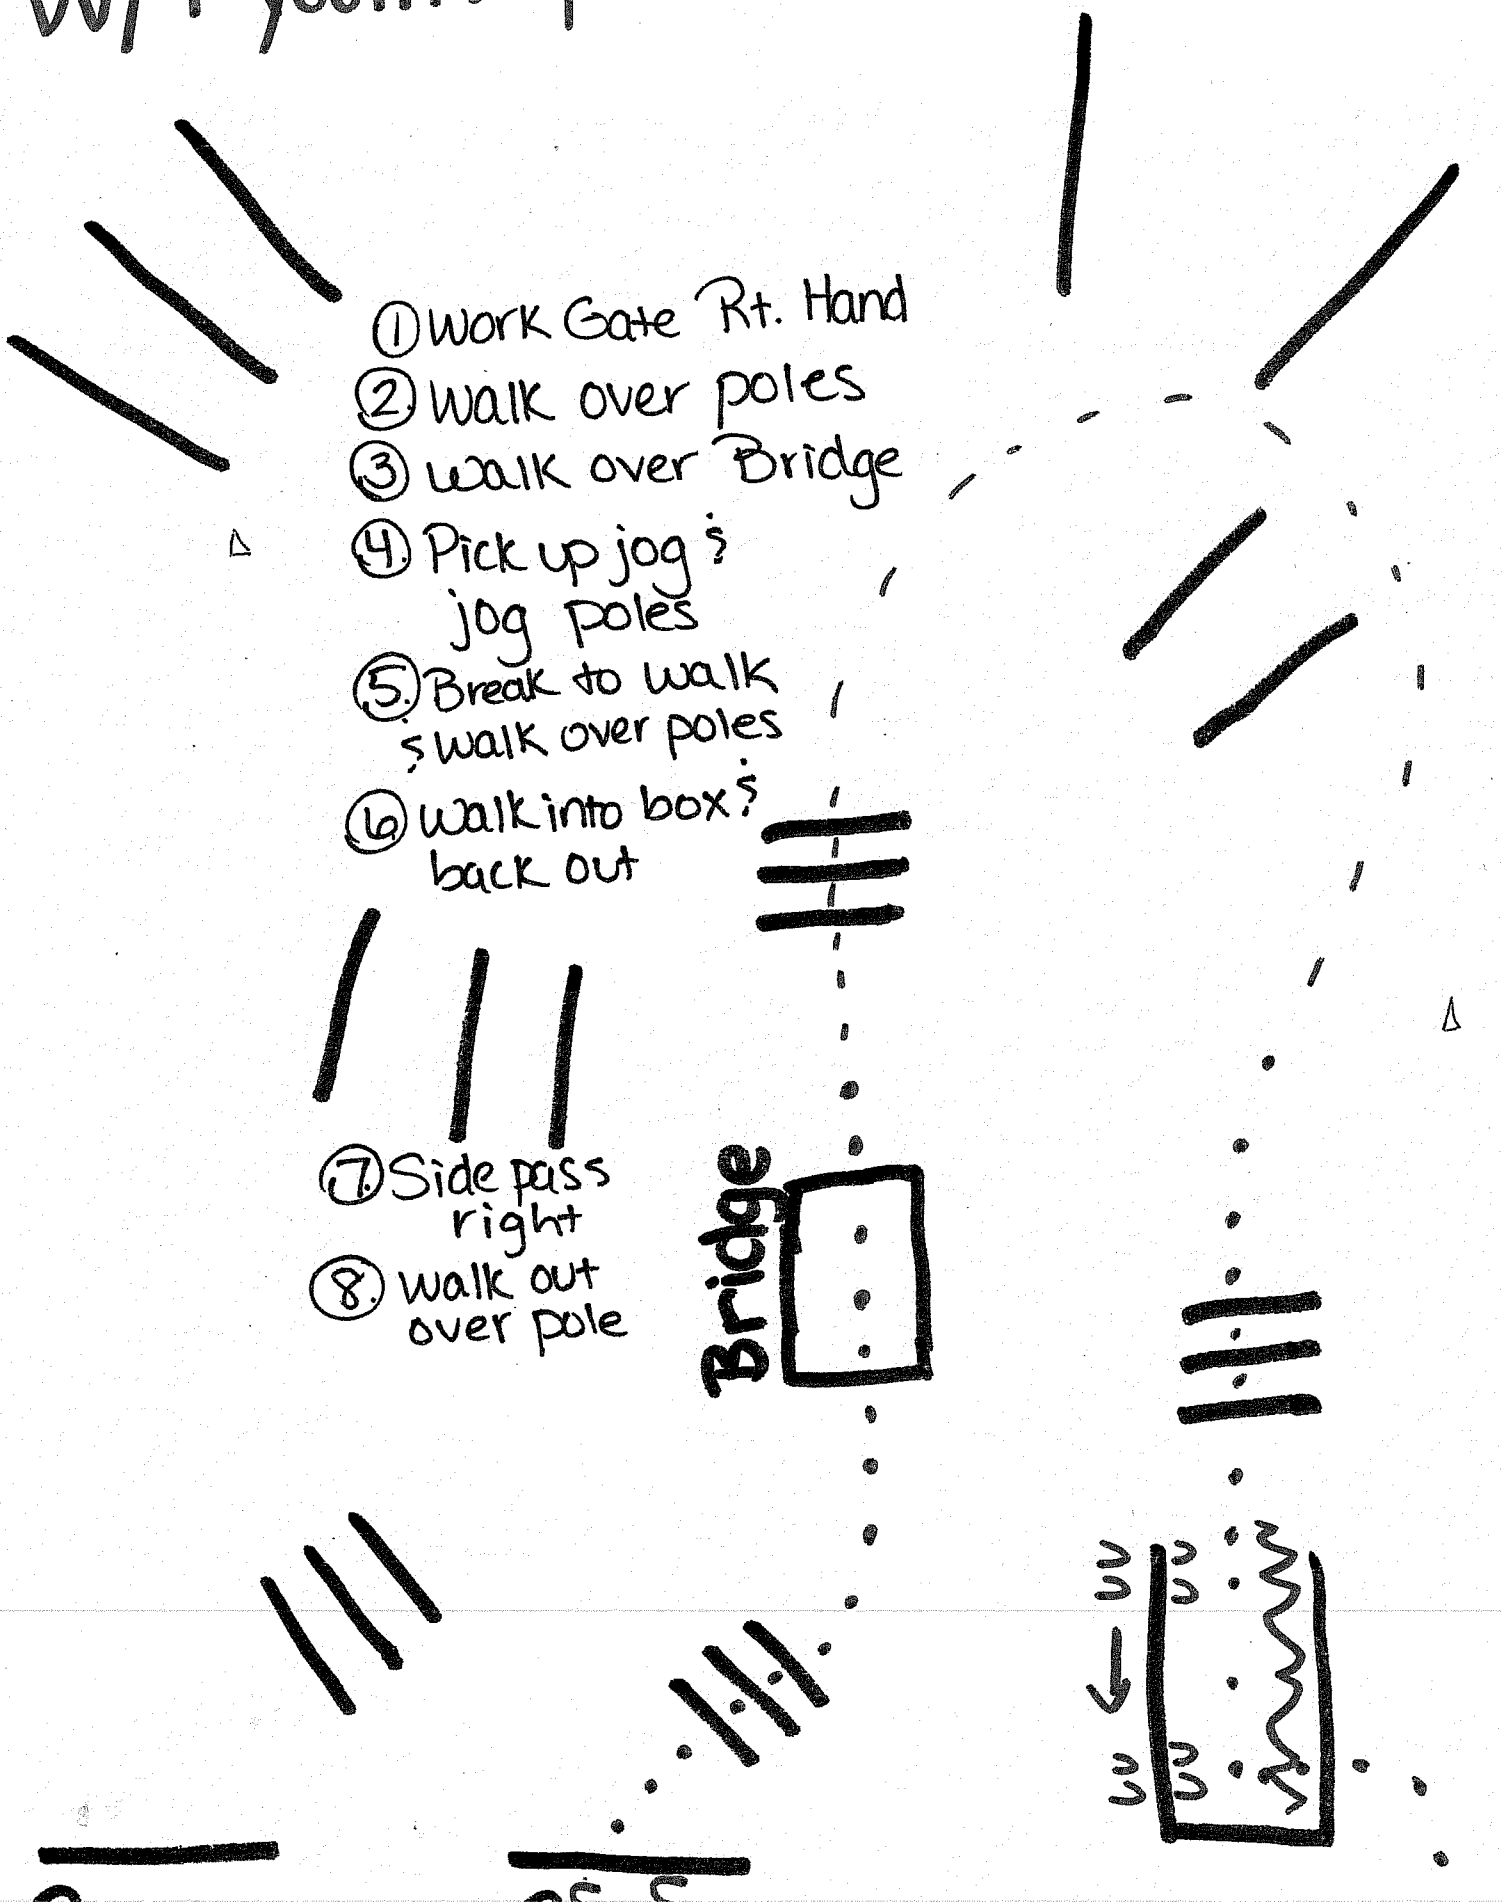 ① Work Gate Rt. Hand
② Walk over poles
③ Walk over Bridge
④. Pick up jog &
jog poles
⑤. Break to walk
& walk over poles
⑥ Walk into box &
back out
⑦. Side pass
right
⑧. Walk out
over pole
Bridge